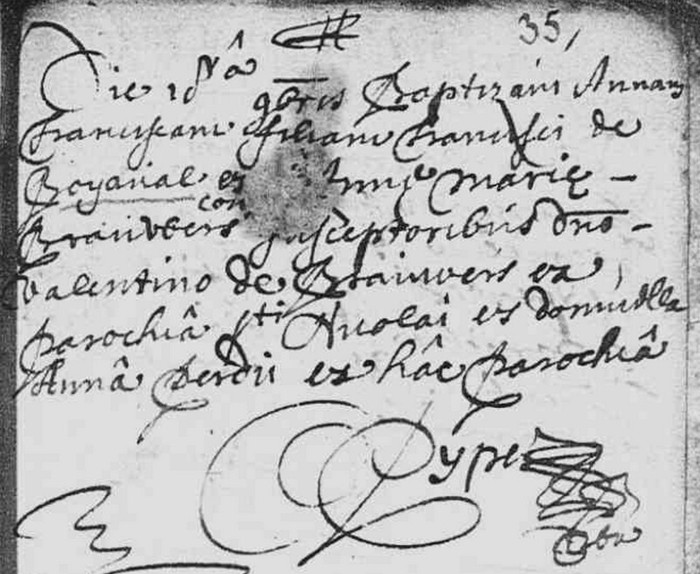 35,
Die 10ᵐâ 9bris Baptizavi Annam
Franciscam filiam Francisci de
Boyaval et Annȩ Mariȩ -
con
Brauwers susceptoribus dno -
Valentino de Brauwers ex
parochiâ Sti Nicolai et domicella
Annâ Perdu ex hâc Parochiâ
Pype